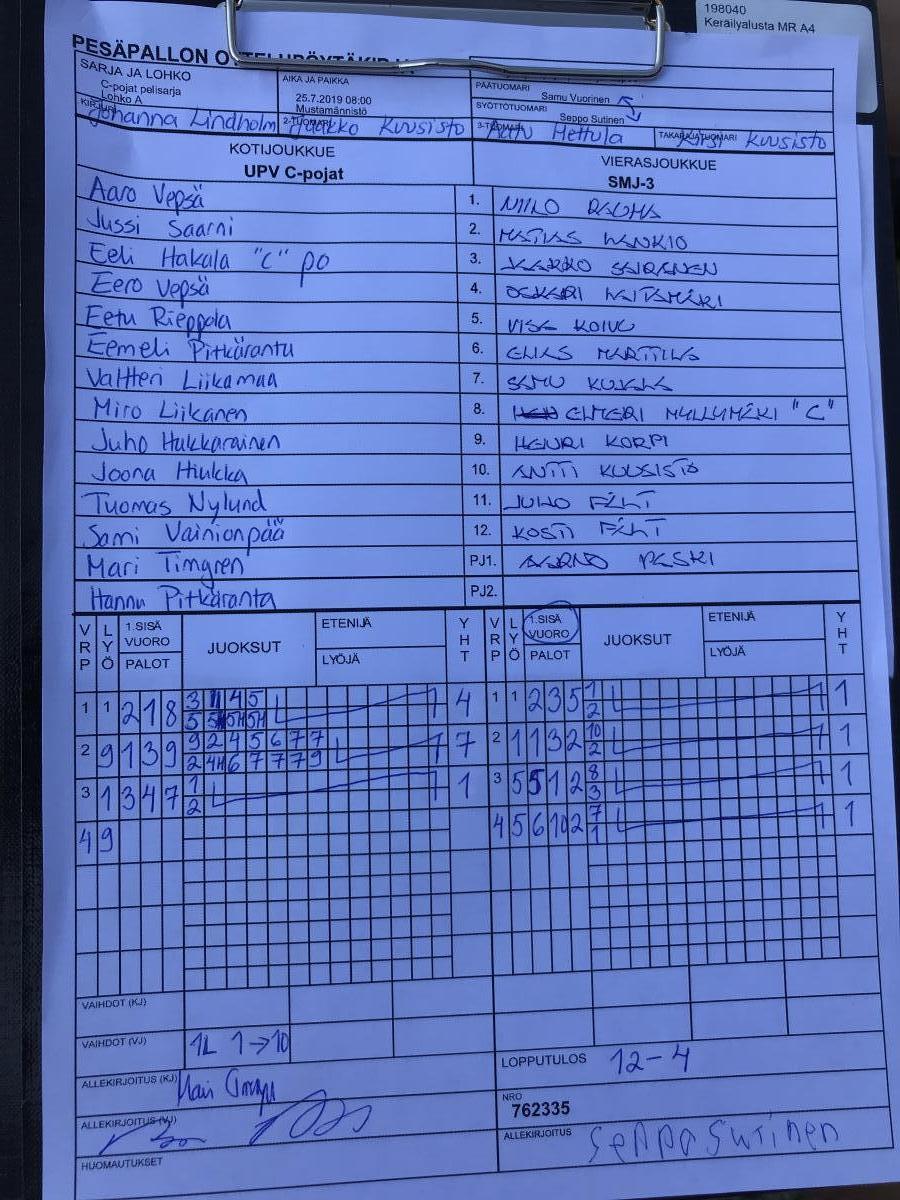 198040
Keräilyalusta MR A4
PESÄPALLON
SARJA JA LOHKO
C-pojat pelisarja
Lohko A
AIKA JA PAIKKA
25.7.2019 08:00
Mustamännistö
PÄÄTUOMARI
Samu Vuorinen
SYÖTTÖTUOMARI
Seppo Sutinen
KIRJURI
Johanna Lindholm
2-TUOMARI
Jaakko Kuusisto
3-TUOMARI
Mettula
TAKARAJATUOMARI
Kirsi Kuusisto
KOTIJOUKKUE
UPV C-pojat
VIERASJOUKKUE
SMJ-3
Aaro Vepsä 1. NIILO RAUMA
Jussi Saarni 2. MATIAS HANKIO
Eeli Hakala "C" po 3. JARKKO SAIRANEN
Eero Vepsä 4. OSKARI
Eetu Rieppola 5. VISA KOIVU
Eemeli Pitkäranta 6. ELIAS MARTTILA
Valtteri Liikamaa 7. SAMU KUJALA
Miro Liikanen 8. ELMERI MYLLYMÄKI "C"
Juho Hukkarainen 9. HENRI KORPI
Joona Hiukka 10. ANTTI KUUSISTO
Tuomas Nylund 11. JUHO FÄLT
Sami Vainionpää 12. KOSTI FÄLT
Mari Timgren PJ1. AARNO PESKI
Hannu Pitkäranta PJ2.
VRP LYÖ 1.SISÄ VUORO PALOT JUOKSUT ETENIJÄ LYÖJÄ YHT VRP LYÖ 1.SISÄ VUORO PALOT JUOKSUT ETENIJÄ LYÖJÄ YHT
1 1 2 1 8 3 1 4 5 4 1 1 2 3 5 1 1
5 5H 5H 5H 2
2 9 1 3 9 9 2 4 5 6 7 7 7 2 1 1 3 2 10 1
2 4H 6 7 7 7 9 2
3 1 3 4 7 1 1 3 5 5 1 2 8 1
2 3
4 9 4 5 6 10 2 7 1
1
VAIHDOT (KJ)
VAIHDOT (VJ) 1L 1→10
LOPPUTULOS 12-4
ALLEKIRJOITUS (KJ)
NRO
762335
ALLEKIRJOITUS (VJ)
ALLEKIRJOITUS Seppo Sutinen
HUOMAUTUKSET